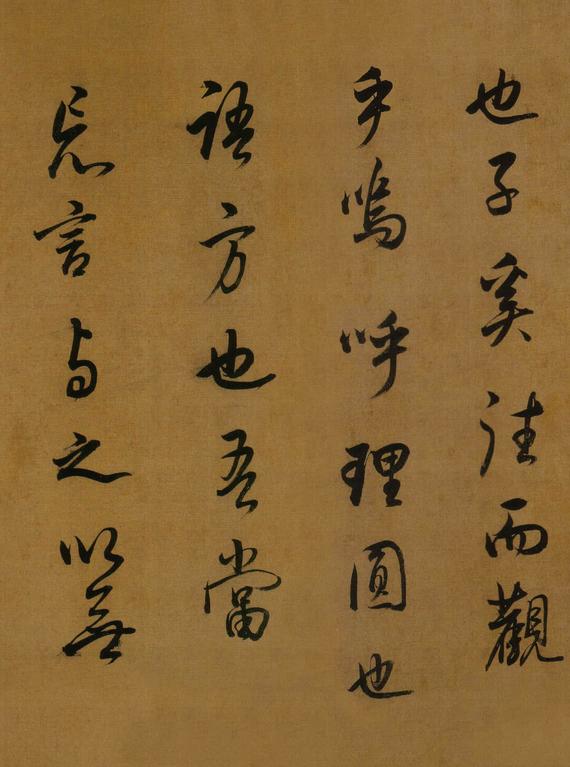 也子奚往而觀
乎嗚呼理圓也
語方也吾當
忘言与之以無